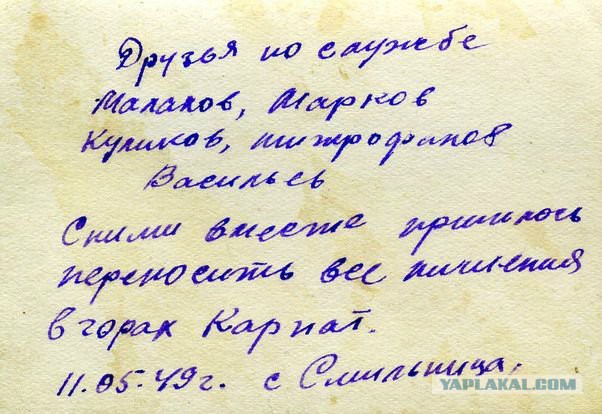 Друзья по службе
Малахов, Марков
Куликов, Митрофанов
Васильев
Сними вместе пришлось
переносить все
в горах Карпат.
11.05.49г. с Смильница.
YAPLAKAL.COM